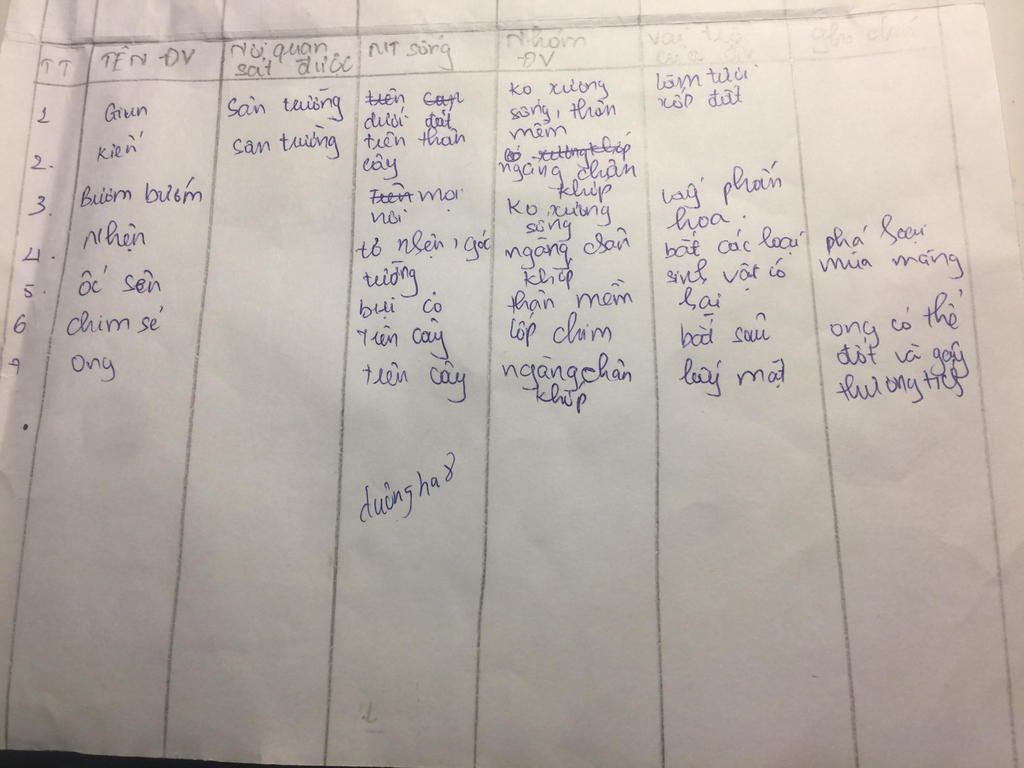 TT TÊN ĐV Nơi quan sát được MT sống Nhóm ĐV vai trò của ĐV ghi chú
1 Giun Sân trường trên dưới đất ko xương sống, thân mềm làm tơi xốp đất
2. Kiến san trường trên thân cây có xương khớp ngàng chân khớp
3. Bướm bướm Trên mọi nơi ko xương sống lấy phấn hoa.
4. Nhện tổ nhện, góc tường ngàng chân khớp bắt các loại sinh vật có hại phá hoại mùa màng
5. ốc sên bụi cỏ thân mềm
6 chim sẻ trên cây lớp chim bắt sâu ong có thể đốt và gây thương tích
7 Ong trên cây ngàng chân khớp lấy mật